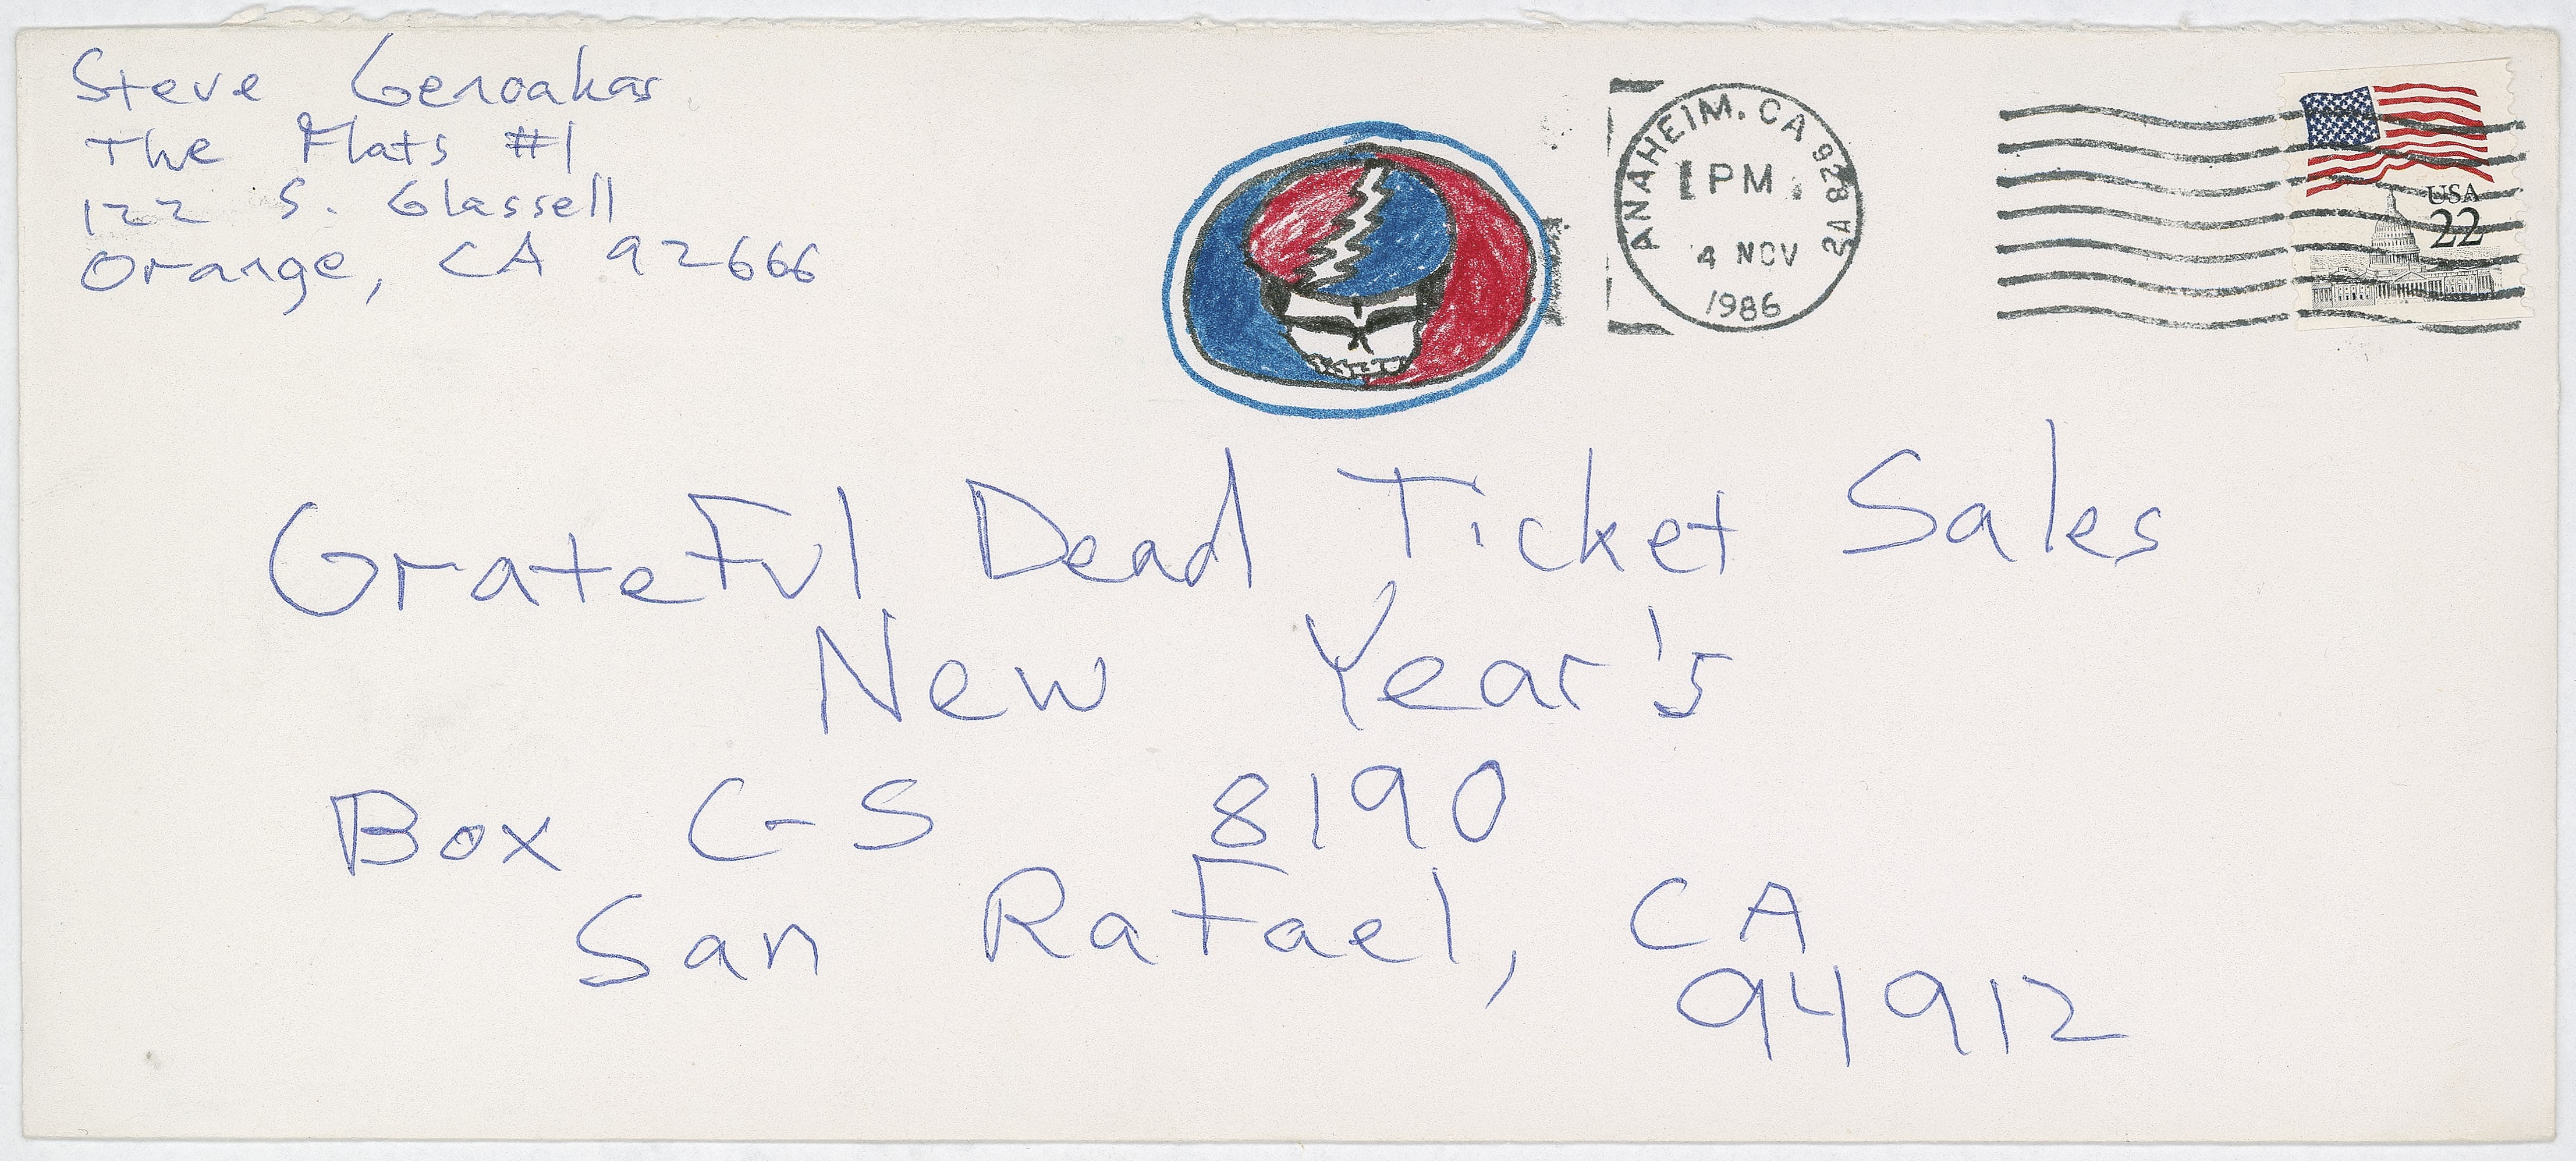 Steve Geroakas
The Flats #1
122 S. Glassell
Orange, CA 92666
ANAHEIM, CA 928 V2
1 PM
4 NOV
1986
USA
22
GrateFul Dead Ticket Sales
New Year's
Box C-S 8190
San RaFael, CA
94912